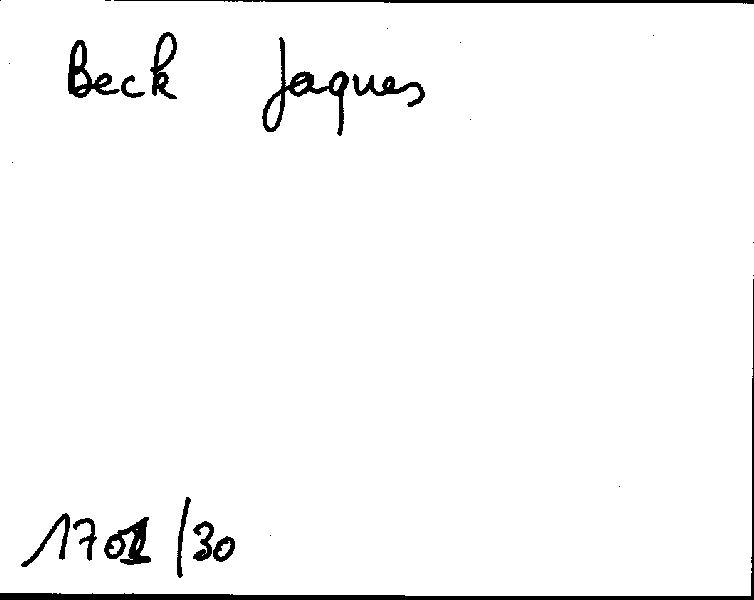 Beck Jaques
1701/30